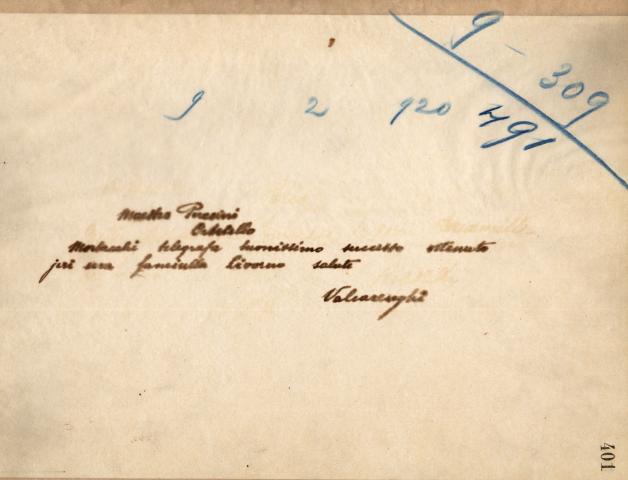 9 - 309
9 2 920 491
Maestro Puccini
Orbetello
Mortacchi telegrafa buonissimo successo ottenuto
jeri sera fanciulla Livorno saluti
Valcarenghi
401